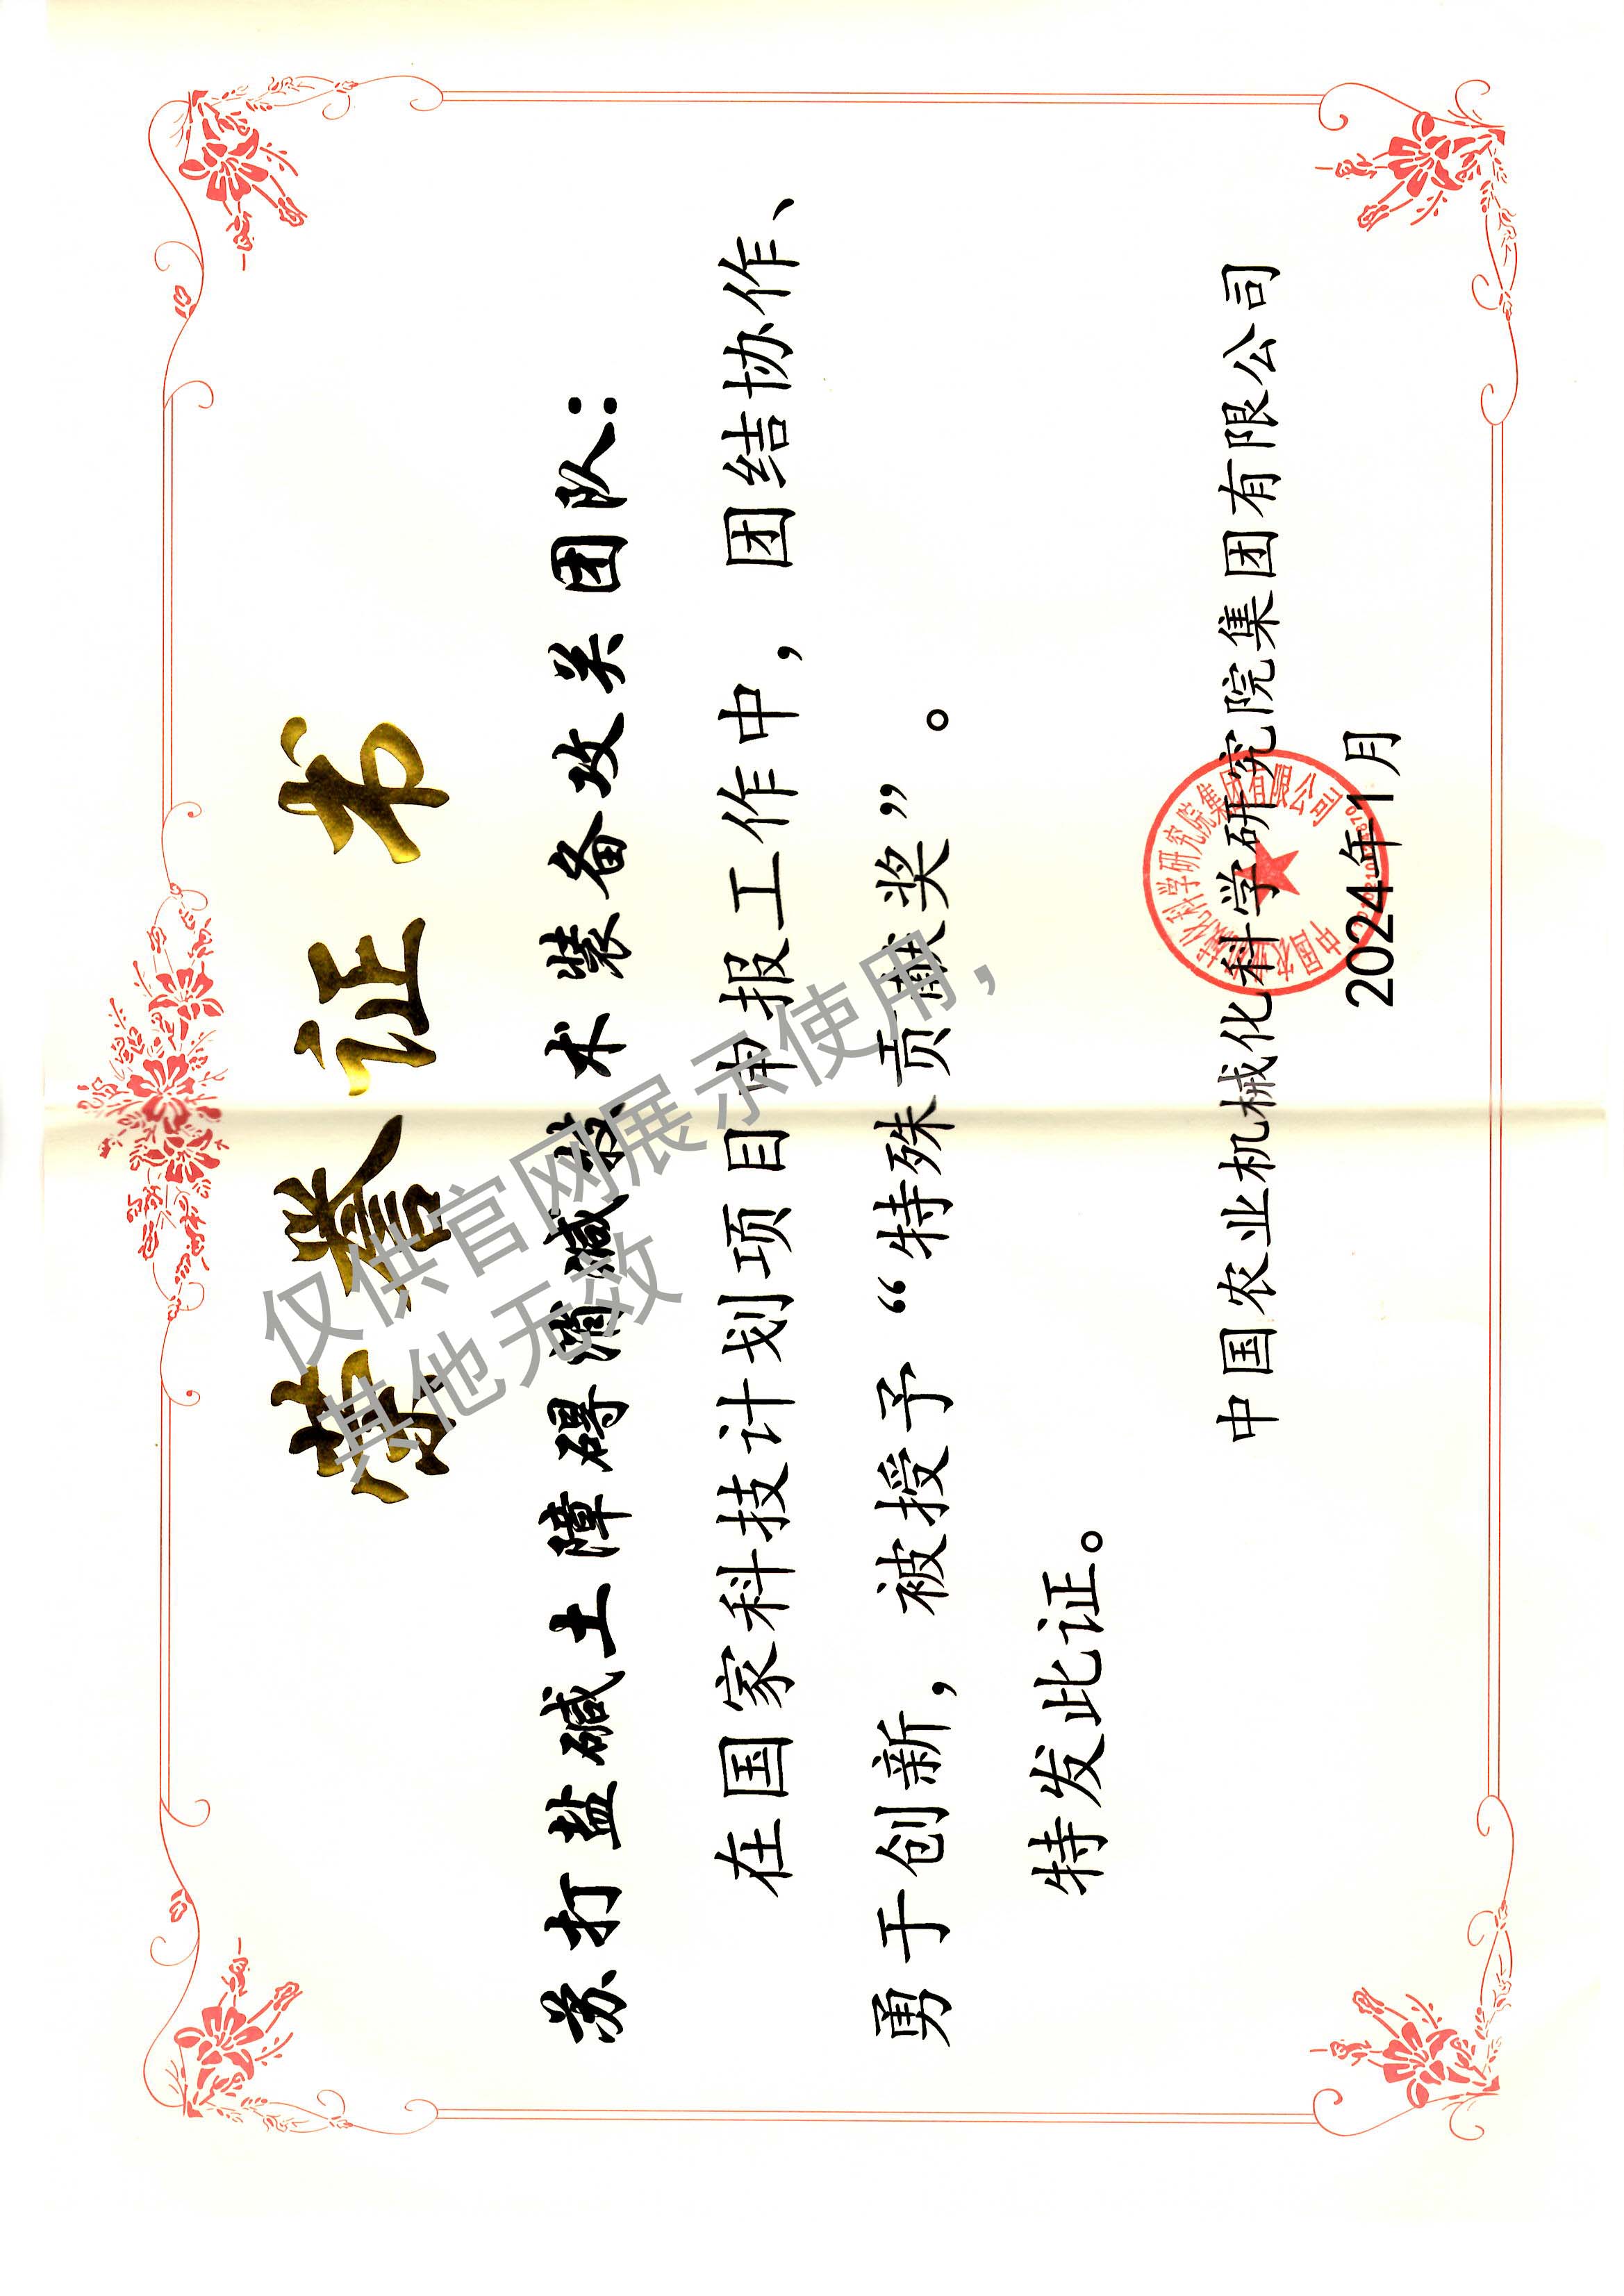 荣誉证书
苏打盐碱土障碍消减技术装备攻关团队：
在国家科技计划项目申报工作中，团结协作、
勇于创新，被授予“特殊贡献奖”。
特发此证。
中国农业机械化科学研究院集团有限公司
2024年1月
中国农业机械化科学研究院集团有限公司
仅供官网展示使用，
其他无效